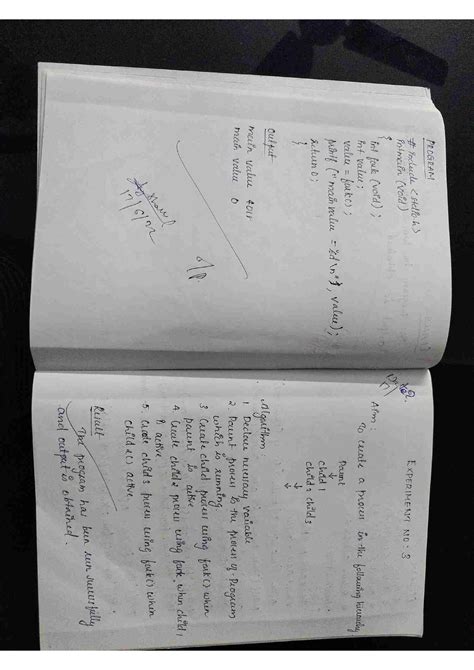 PROGRAM
# include <stdio.h>
int main (void)
{
int fork (void);
int value;
value = fork();
printf ("main value = %d \n", value);
return 0;
}
Output
main value 4011
main value 0
17/6/22
O/P
EXPERIMENT NO : 3
Aim :
To create a process in the following hierarchy
Parent
child 1
child 2 child 3
Algorithm
1 Declare necessary variable
2 Parent process is the process of Program
which is running
3 Create child 1 process using fork() when
parent is active
4. Create child 2 process using fork, when child 1
is active
5. Create child 3 process using fork() when
child 2 is active.
Result
The program has been run successfully
and output is obtained